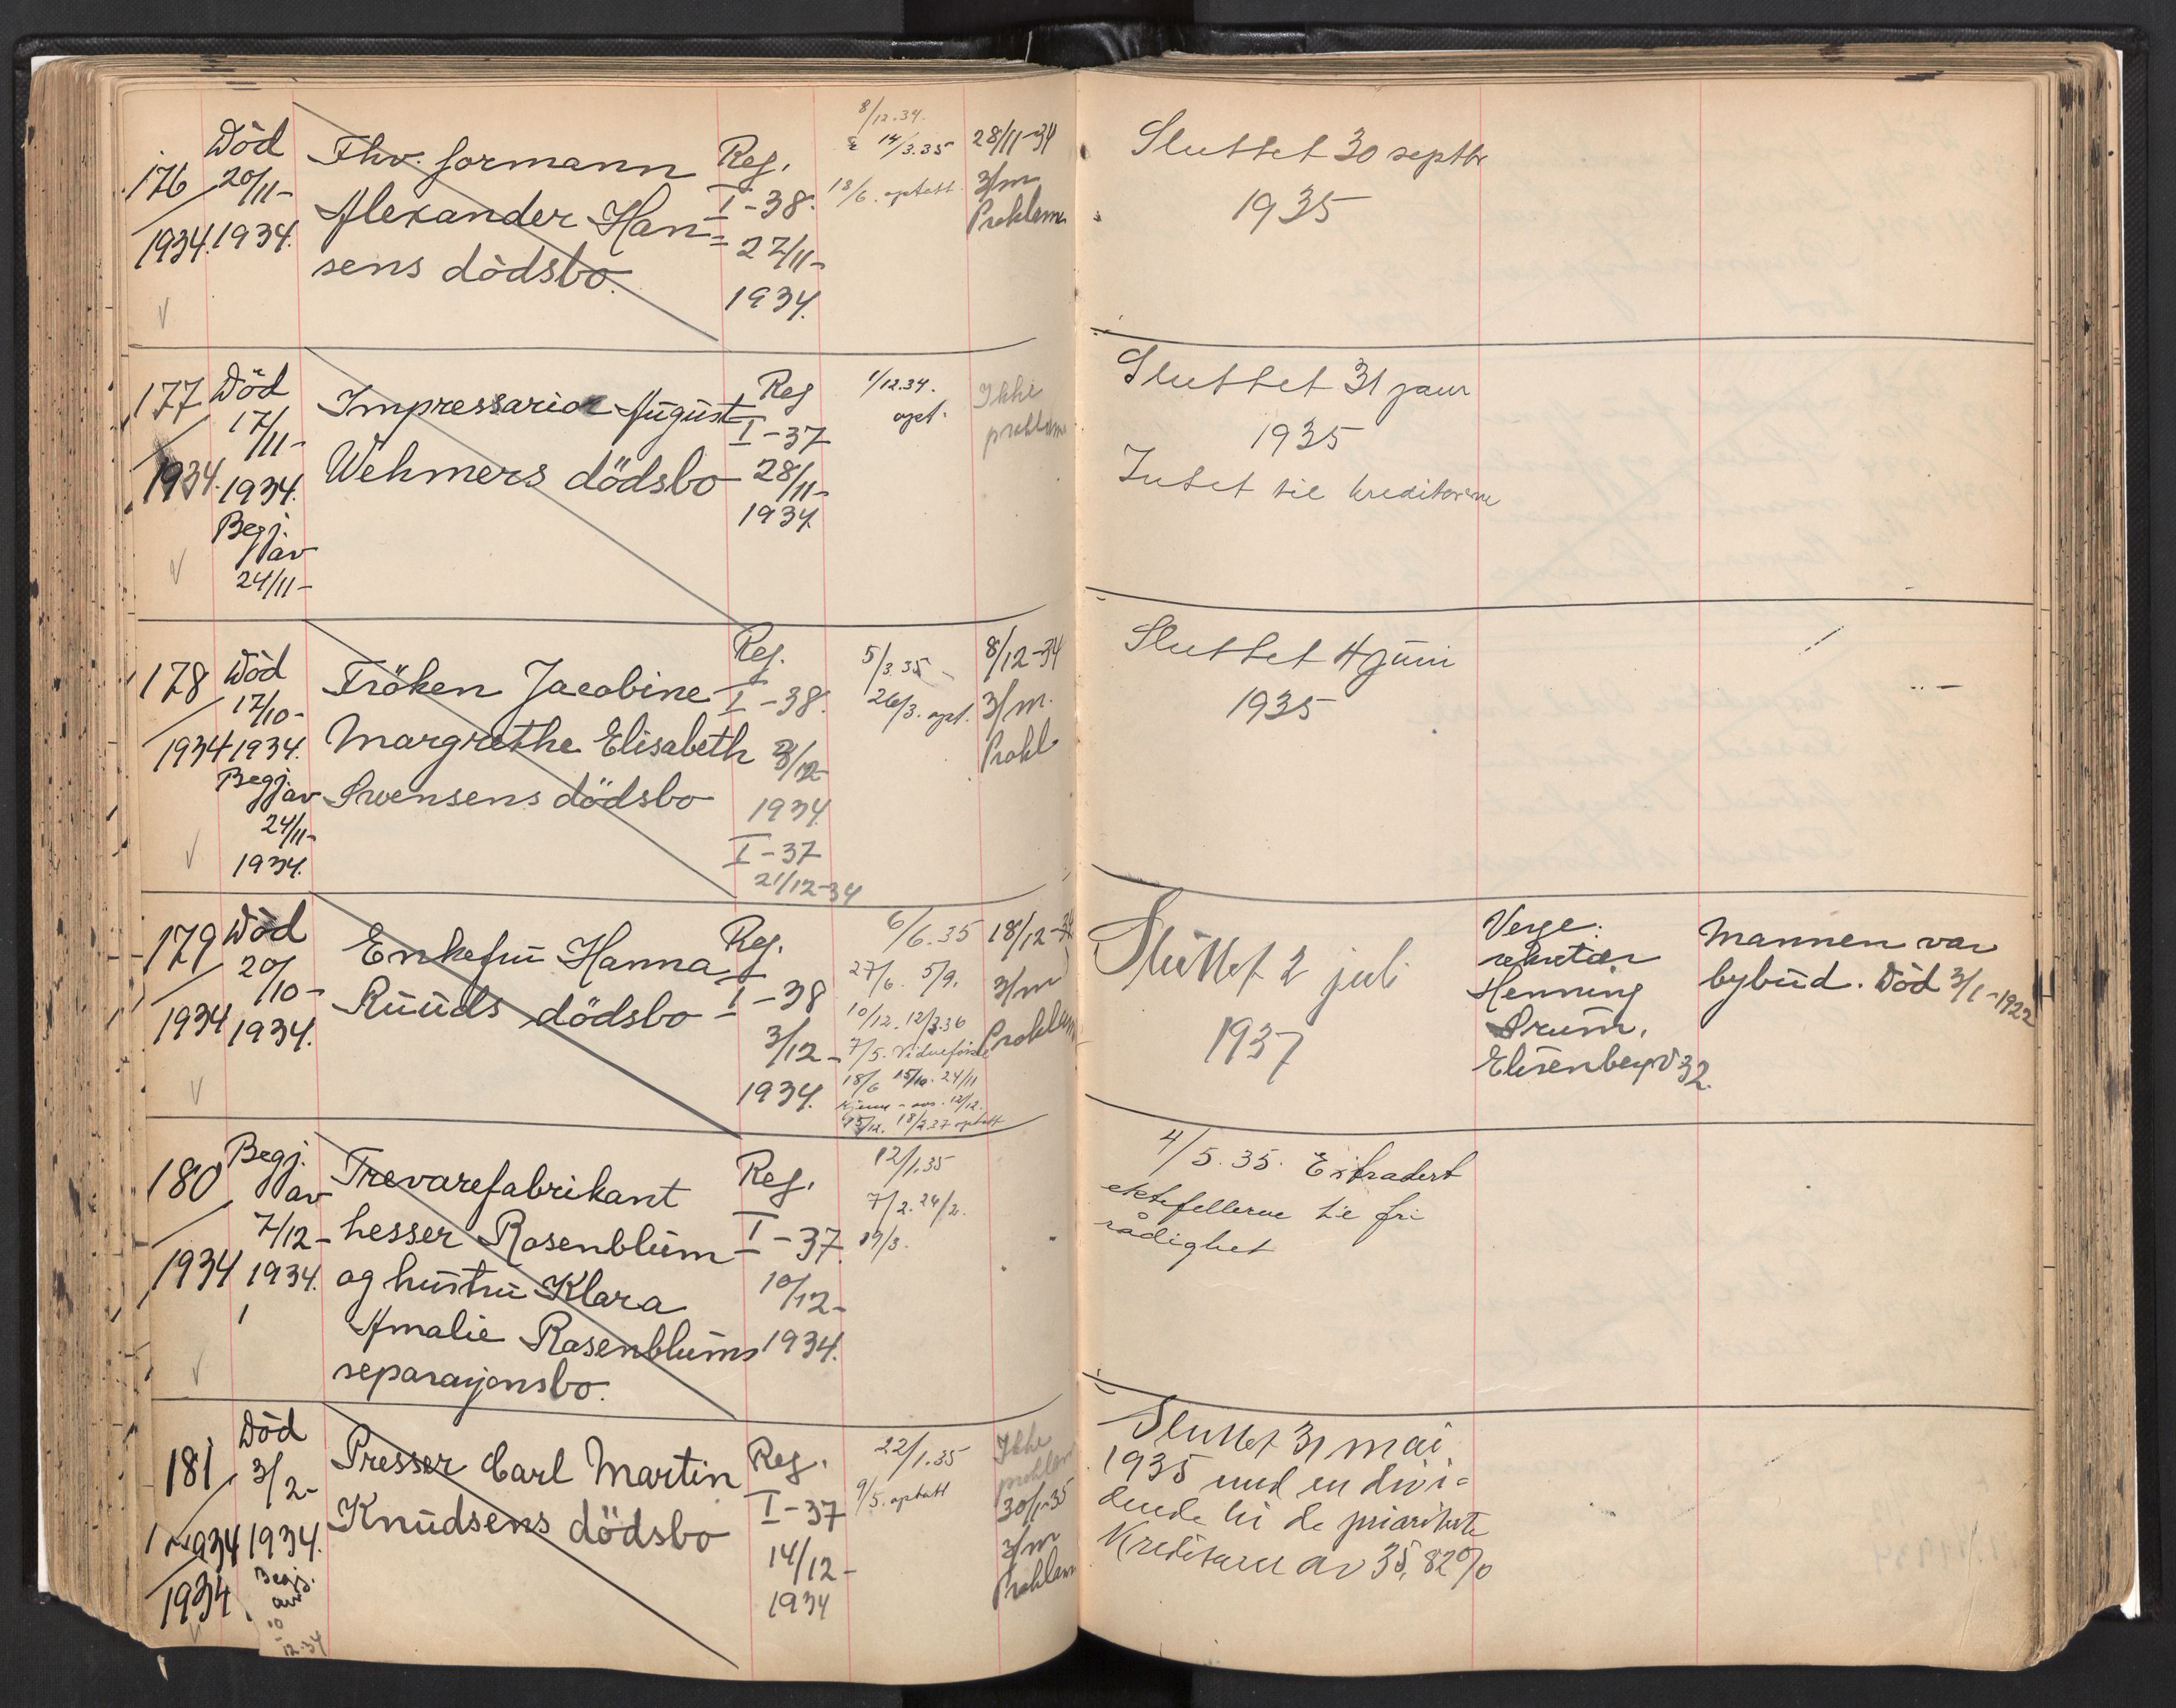 176
1934.
Död
20/11-
1934.
Fhv. formann
Alexander Han=
sens dödsbo.
Reg.
I-38.
27/11-
1934.
8/12.34.
14/3.35
18/6. optatt
28/11-34
3/m
Proklam
Sluttet 30 septbr
1935
177
1934.
Död
17/11-
1934.
Begj.
av
24/11-
Impressario August
Wehmers dödsbo
Reg
I-37
28/11-
1934
1/12.34.
opt.
Ikke
proklam
Sluttet 31 janr
1935
Intet til kreditorerne
178
1934
Död
17/10-
1934.
Begj.
av
24/11-
1934.
Fröken Jacobine
Margrethe Elisabeth
Svensens dödsbo
Reg.
I-38.
3/12-
1934
I-37
21/12-34
5/3.35
26/3. opt.
8/12-34
3/m.
Prokl
Sluttet 4 juni
1935
179
1934
Död
20/10-
1934.
Enkefru Hanna
Ruuds dödsbo
Reg.
I-38
3/12-
1934.
6/6.35
27/6. 5/9.
10/12. 12/3.36
7/5.
18/6 15/10. 24/11
12/12.
18/2.37 optatt
18/12-34
3/m
Proklam
Sluttet 2 juli
1937
Verge:
sekretær
Henning
Srum,
Elisenbergv 32.
Mannen var
bybud. Död 3/1-1922
180
1934
Begj.
av
7/12-
1934.
Trevarefabrikant
hesser Rosenblum
og hustru Klara
Amalie Rosenblums
separasjonsbo.
Reg.
I-37.
10/12-
1934.
12/1.35
7/2. 26/2.
19/3.
4/5.35. Extradert
ektefellerne til fri
rådighet
181
1934
1934
Död
3/2-
1934.
Begj.
av
10
12.34
Presser Carl Martin
Knudsens dödsbo
Reg.
I-37
14/12-
1934
22/1.35
9/5. optatt
Ikke
proklam
30/1-35
3/m
Proklam
Sluttet 31 mai
1935 med en divi=
dende til de prioriterte
Kreditorer av 35,82%